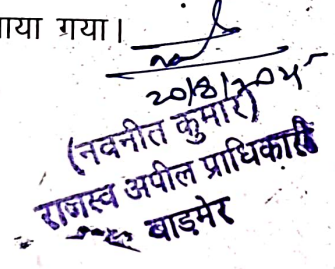 ाया गया।
20/8/2025
(नवनीत कुमार)
राजस्व अपील प्राधिकारी
बाड़मेर